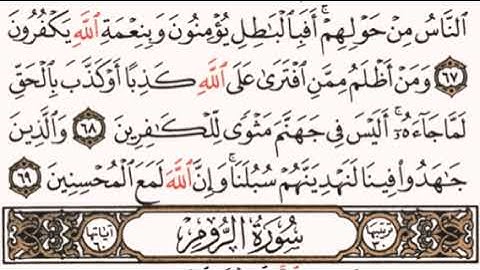 ٱلنَّاسُ مِنۡ حَوۡلِهِمۡۚ أَفَبِٱلۡبَٰطِلِ يُؤۡمِنُونَ وَبِنِعۡمَةِ ٱللَّهِ يَكۡفُرُونَ
٦٧ وَمَنۡ أَظۡلَمُ مِمَّنِ ٱفۡتَرَىٰ عَلَى ٱللَّهِ كَذِبًا أَوۡ كَذَّبَ بِٱلۡحَقِّ
لَمَّا جَآءَهُۥٓۚ أَلَيۡسَ فِي جَهَنَّمَ مَثۡوٗى لِّلۡكَٰفِرِينَ ٦٨ وَٱلَّذِينَ
جَٰهَدُواْ فِينَا لَنَهۡدِيَنَّهُمۡ سُبُلَنَاۚ وَإِنَّ ٱللَّهَ لَمَعَ ٱلۡمُحۡسِنِينَ ٦٩
ترتيبها ٣٠ سُورَةُ الرُّومِ آياتها ٦٠